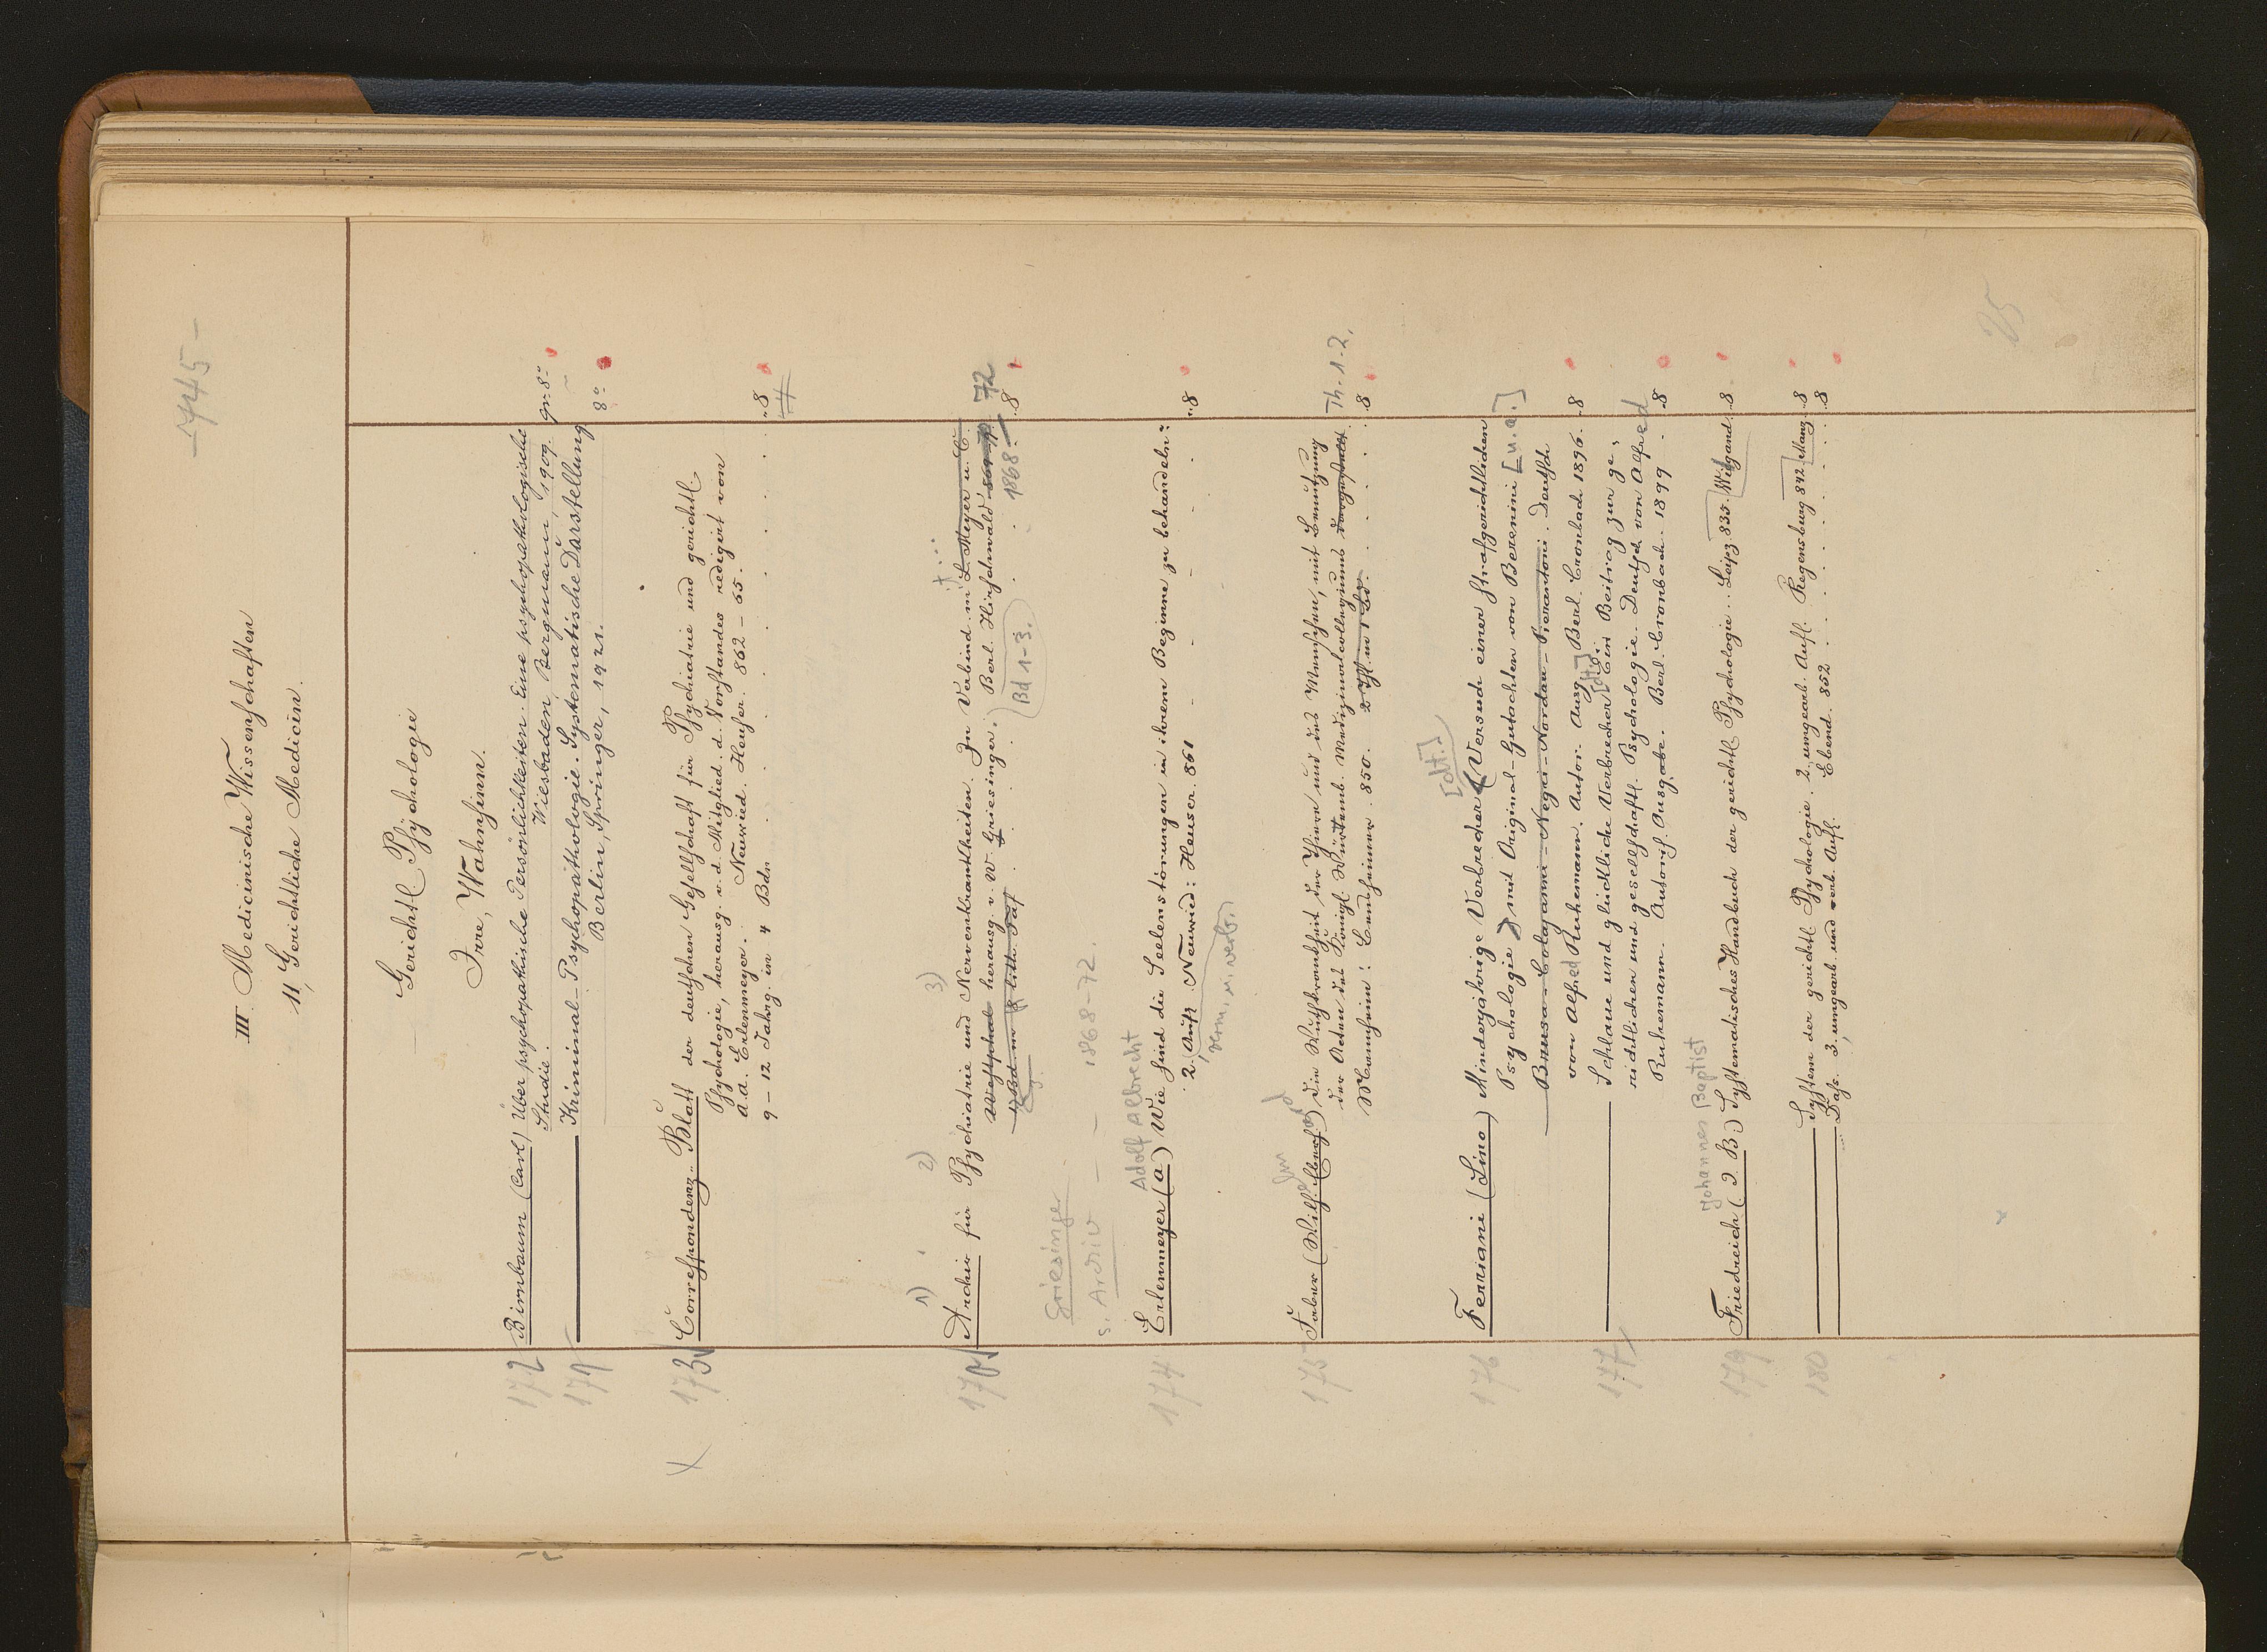 -745-
III. Medicinische Wissenschaften
11, Gerichtliche Medicin.
Gerichtl. Psychologie
Irre, Wahnsinn.
172 Birnbaum (Carl) Über psychopathische Persönlichkeiten. Eine psychopathologische
Studie. Wiesbaden, Bergmann, 1909. gr. 8°
171 Kriminal-Psychopathologie. Systematische Darstellung
Berlin, Springer, 1921. 8°
173 Correspondenz-Blatt der deutschen Gesellschaft für Psychiatrie und gerichtl
Psychologie, herausg. v. d. Mitglied. d. Vorstandes redigirt von
A.A. Erlenmeyer. Neuwied. Heuser. 862-65.
9-12 Jahrg. in 4 Bdn 8
1) 2) 3)
Archiv für Psychiatrie und Nervenkrankheiten. In Verbind. m. L. Meyer u. C.
Westphal herausg. v. W. Griesinger. Berl. Hirschwald 72
1868. 8
Bd 1-3.
Griesinger
s. Archiv — — 1868-72.
Adolf Albrecht
174 Erlenmeyer (A.) Wie sind die Seelenstörungen in ihrem Beginne zu behandeln?
2. Aufl. Neuwied: Heuser. 861 8
verm. u. verb.
175 Faber (Wilh. Eberh.) Die Wuthkrankheit der Thiere und des Menschen, mit Benutzung
der Acten des Königl. Württemb. Medizinalcollegiums dargestellt. Th. 1-2.
Mannheim: Bensheimer. 850. 2 Thl. in 1 Bd. 8
[dt.]
176 Ferriani (Lino) Minderjährige Verbrecher (Versuch einer strafgerichtlichen
Psychologie) mit Original-Gutachten von Berenini [u.a.]
Brusa-Colajanni-Negri-Nordau-Pierantoni. Deutsch
von Alfred Ruhemann. Autor. Ausg Berl. Cronbach 1896. 8
[dt.]
177 Schlaue und glückliche Verbrecher. Ein Beitrag zur ge,
richtlichen und gesellschaftl. Psychologie. Deutsch von Alfred
Ruhemann. Autoris. Ausgabe. Berl. Cronbach. 1899 8
Johannes Baptist
179 Friedreich (J. B.) Systematisches Handbuch der gerichtl Psychologie. Leipz. 835. Wigand. 8
180 System der gerichtl. Psychologie. 2. umgearb. Aufl. Regensburg 842 Manz. 8
Dass. 3. umgearb. und verb. Aufl. Ebend. 852 8
25